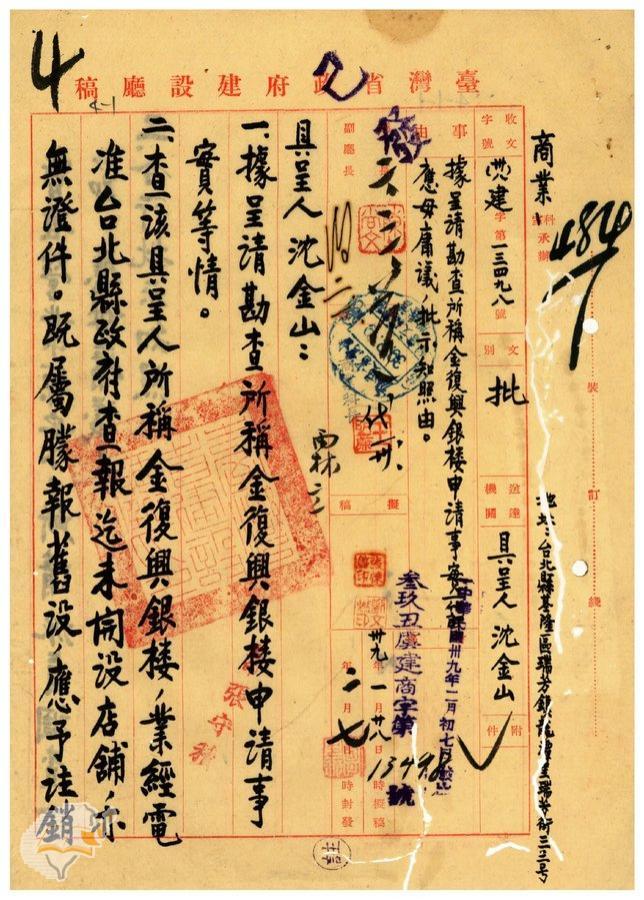 4
臺灣省政府建設廳稿
4-1
收文字號
岃建字第一三四九八號
文別
批
送達機關
具呈人沈金山
附件
商業
科承辦
484
裝訂線
地址：台北縣基隆區瑞芳鎮龍潭里瑞芳街三二號
事由
據呈請勘查所稱金復興銀楼申請事實一節
應毋庸議，批示知照由。
副廳長
擬稿
卅九年一月廿八日
時擬稿
二月七日
時封發
中華民國卅九年二月初七
叁玖丑虞建商字第13498號
具呈人沈金山：
一、據呈請勘查所稱金復興銀楼申請事
實等情。
二、查該具呈人所稱金復興銀楼，業經電
准台北縣政府查報迄未開設店舖，亦
無證件。既屬朦報舊設，應予註
銷
張守